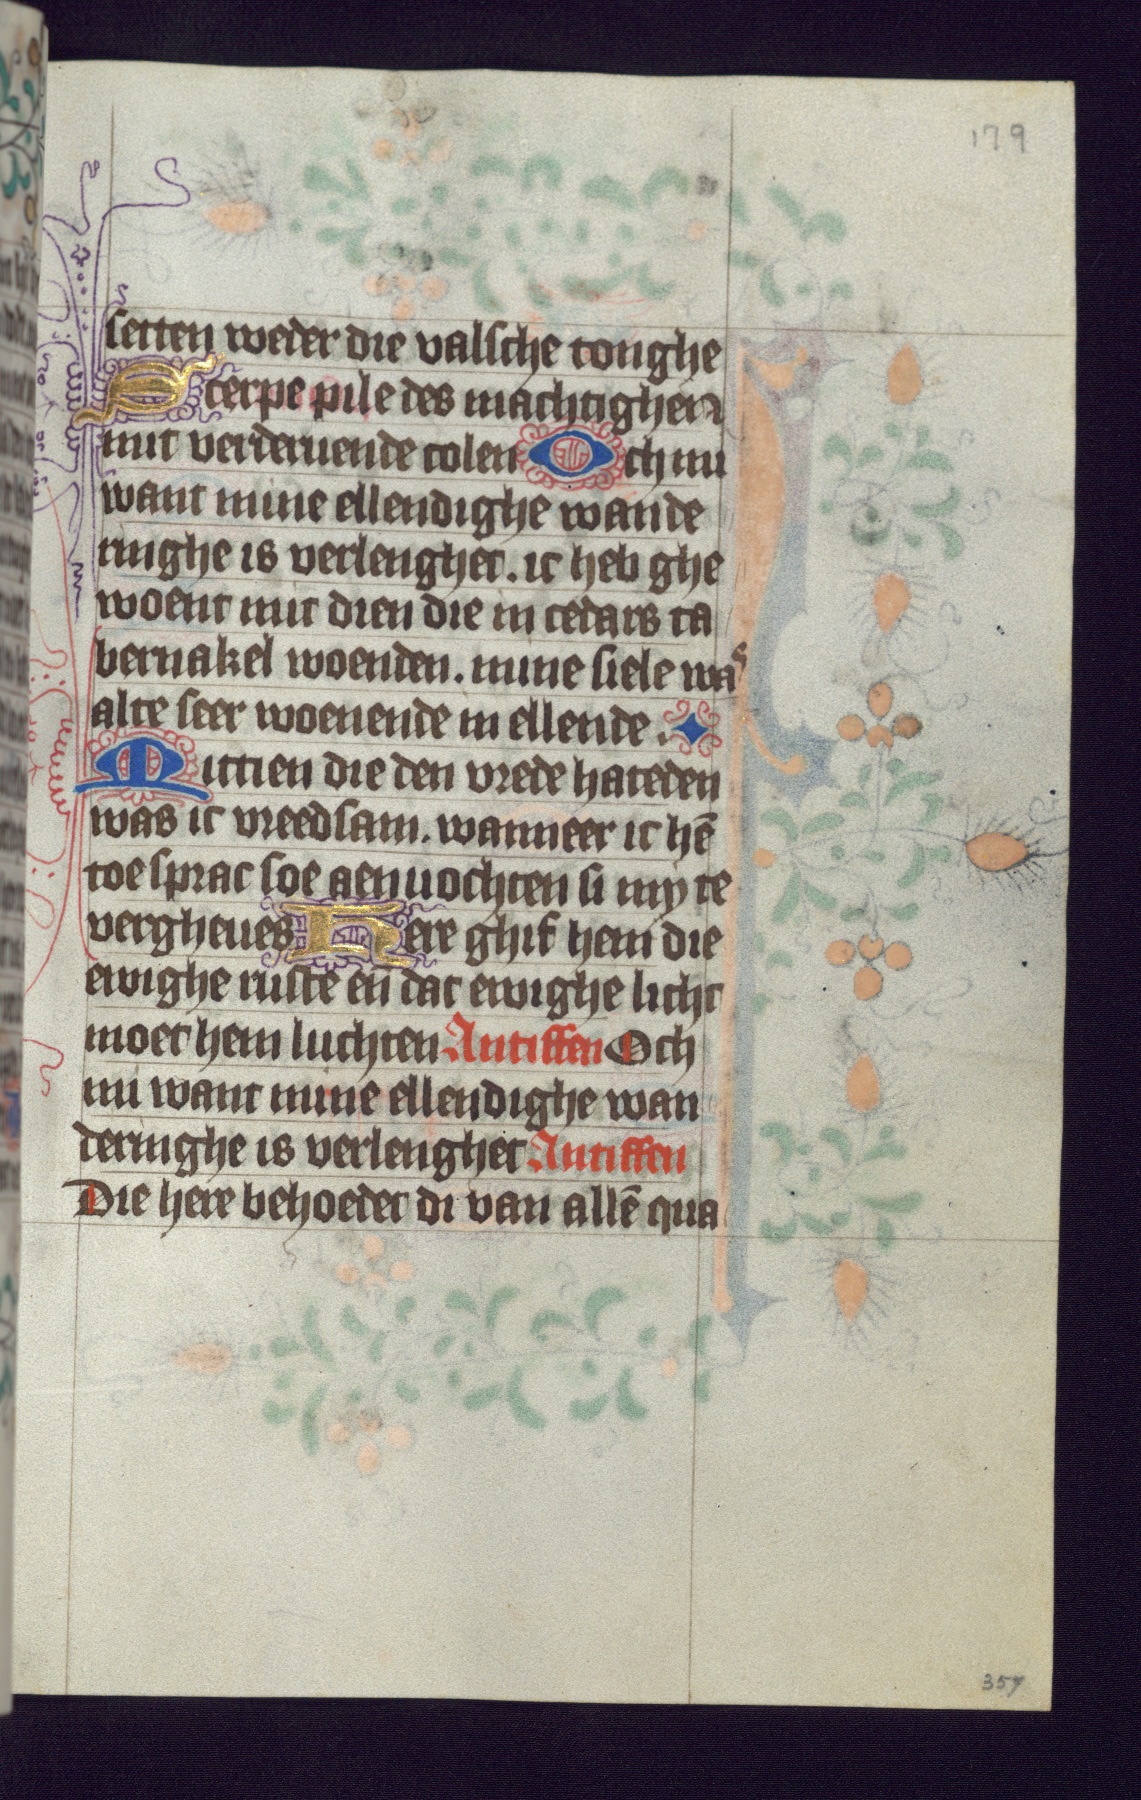 179
setten weder die valsche tonghe
Scerpe pile des machtighen
mit verderuende colen Och mi
want mine ellendighe wande
ringhe is verlenghet. ic heb ghe
woent mit dien die in cedars ta
bernakel woenden. mine siele was
alte seer woenende in ellende.
Mittien die den vrede hateden
was ic vreedsam. wanneer ic hē
toe sprac soe aenuochten si my te
vergheues Here ghif hem die
ewighe ruste en̄ dat ewighe licht
moet hem luchten Antiffen Och
mi want mine ellendighe wan
deringhe is verlenghet Antiffen
Die here behoedet di van allē qua
357